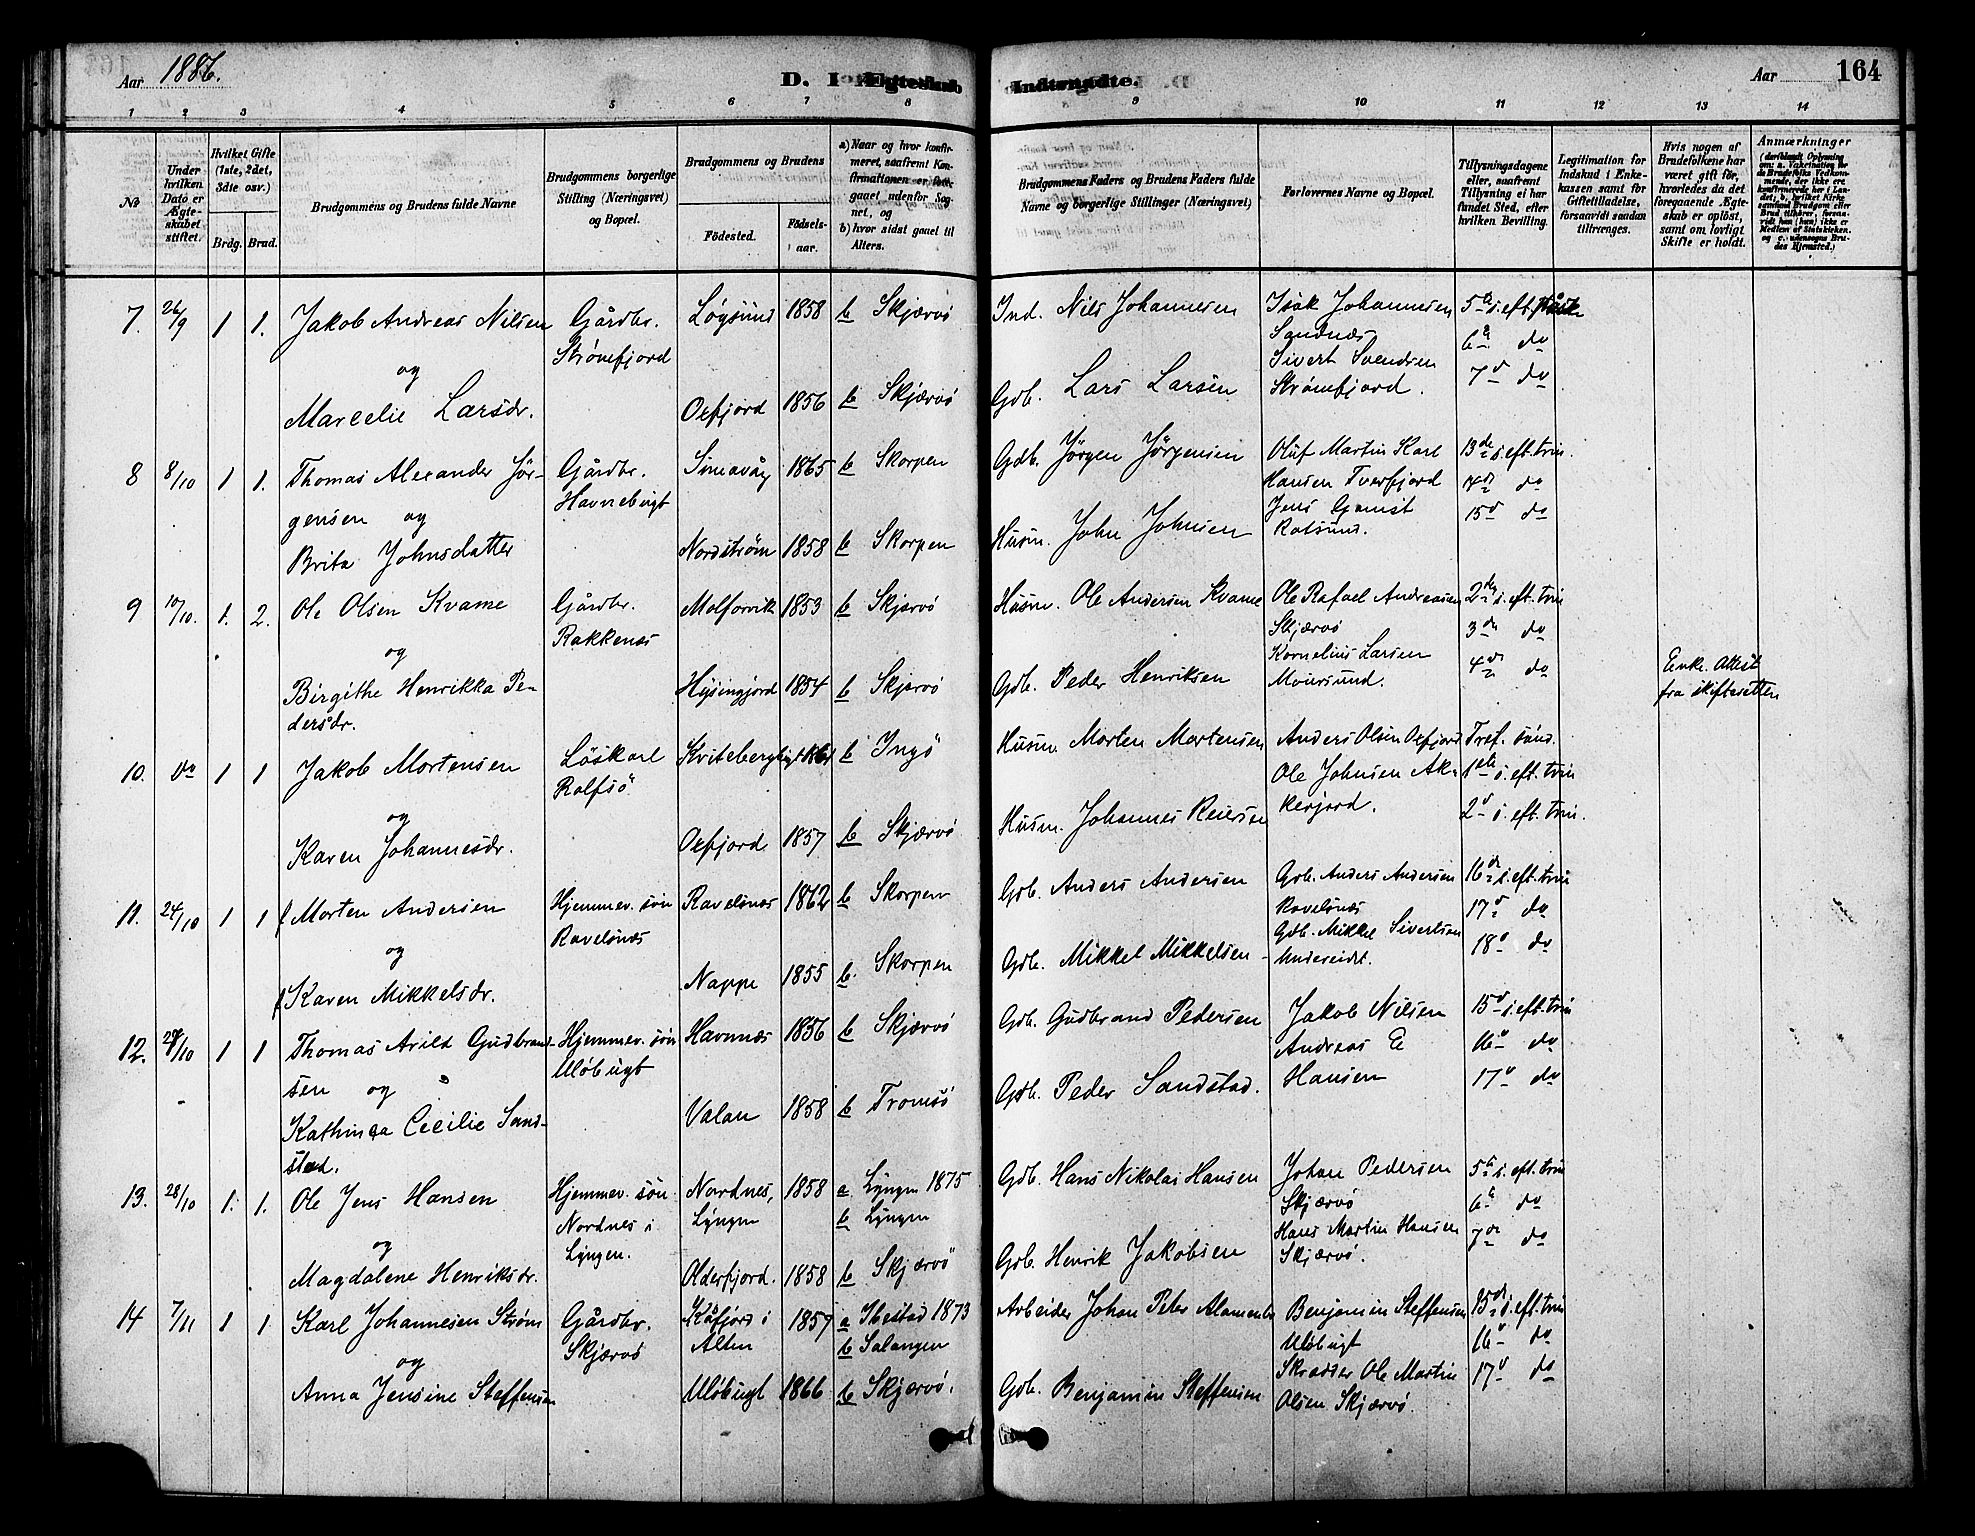 Aar 1886.
D. Indtrængdte.
Aar
164
1 2 3 4 5 6 7 8 9 10 11 12 13 14
No
Under hvilken Dato er Ægteskabet stiftet.
Hvilket Gifte (1ste, 2det, 3die osv.)
Brdg. Brud.
Brudgommens og Brudens fulde Navne
Brudgommens borgerlige Stilling (Næringsvei) og Bopæl.
Brudgommens og Brudens
Fødested.
Fødselsaar.
a) Naar og hvor konfirmeret, saafremt Konfirmationen er foregaaet udenfor Sognet, og
b) hvor sidst gaaet til Alters.
Brudgommens Faders og Brudens Faders fulde Navne og borgerlige Stillinger (Næringsvei)
Forlovernes Navne og Bopæl.
Tillysningsdagene eller, saafremt Tillysning ei har fundet Sted, efter hvilken Bevilling.
Legitimation for Indskud i Enkekassen samt for Giftetilladelse, forsaavidt saadan tiltrænges.
Hvis nogen af Brudefolkene har været gift før, hvorledes da det foregaaende Ægteskab er opløst, samt om lovligt Skifte er holdt.
Anmærkninger
7. 26/9 1 1. Jakob Andreas Nilsen Gårdbr. Strømfjord Løgsund 1858 b Skjærvö Ind. Nils Johannesen Isak Johannesen Sandnæs 5te s. eft. Påske
og
Sivert Svendsen Strømfjord. 6te do
7d do
Marcelie Larsdr. Oxfjord 1856 b Skjærvö Gdb. Lars Larsen
8 8/10 1 1. Thomas Alexander Jörgensen og Gårdbr. Havnebugt Simavåg 1865 b Skorpen Gdb. Jörgen Jörgensen Oluf Martin Karl Hansen Tverfjord 13de s. eft. trin.
Jens Gamst Rotsund. 14d do
15d do
Brita Johnsdatter Nordström 1858 b Skorpen Husm. John Johnsen
9 10/10. 1. 2. Ole Olsen Kvame Gårdbr. Rakkenæs Molforvik 1853 b Skjærvö Husm. Ole Andersen Kvame Ole Rafael Andreassen Skjærvö 2den s. eft. trin
og
Kornelius Larsen Maursund. 3de do
4de do
Birgithe Henrikka Pedersdr. 1854 b Skjærvö Gdb. Peder Henriksen Enke. Attest fra skifteretten
10. do 1 1 Jakob Mortensen Löskarl Rolfsö b Ingö Husm. Morten Mortensen Anders Olsen Oxfjord Tref. sönd.
og
Ole Johnsen Akkerjord. 1ste s. eft. trin
2d s. eft. trin.
Karen Johannesdr. Oxfjord 1857 b Skjærvö Husm. Johannes Reiersen
11. 24/10 1 1 Morten Andersen Hjemmev. sön Ravelsnæs Ravelsnæs 1862 b Skorpen Gdb. Anders Andersen Gdb. Anders Andersen Ravelsnæs 16de s. eft. trin
og
Gdb. Mikkel Sivertsen Undereidet. 17d do
18d do
Karen Mikkelsdr. Nappe 1855 b. Skorpen Gdb. Mikkel Mikkelsen
12. 24/10 1 1 Thomas Arild Gudbrandsen og Hjemmev. sön Ulöbugt Havnnæs 1856 b Skjærvö Gdb. Gudbrand Pedersen Jakob Nilsen 15d s. eft. trin
Andreas E Hansen 16d do
17d do
Kathinca Cecilie Sandstad. Valan 1858 b Tromsö Gdb. Peder Sandstad.
13. 28/10 1. 1. Ole Jens Hansen Hjemmev. sön Nordnes i Lyngen. Nordnes, Lyngen 1858 a Lyngen 1875 b Lyngen Gdb. Hans Nikolai Hansen Johan Pedersen Skjærvö 5te s. eft. trin
og
Hans Martin Hansen Skjærvö. 6te do
7de do
Magdalene Henriksdr. Olderfjord. 1858 b Skjærvö Gdb. Henrik Jakobsen
14 7/11 1 1. Karl Johannesen Ström Gårdbr. Skjærvö Kåfjord i Alten 1857 a Ibestad 1873 b Salangen Arbeider Johan Peter Benjamin Steffensen Ulöbugt 15de s. eft. trin
og
Skrædder Ole Martin Olsen Skjærvö. 16d do
17d do
Anna Jensine Steffensen Ulöbugt 1866 b Skjærvö. Gdb. Benjamin Steffensen